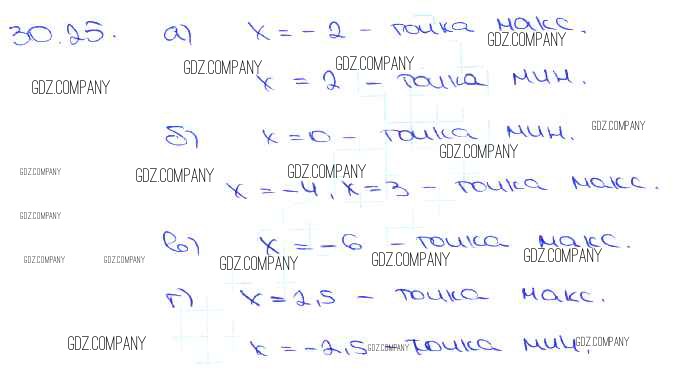 30.25. а) x = -2 - точка макс.
GDZ.COMPANY
GDZ.COMPANY GDZ.COMPANY
GDZ.COMPANY
x = 2 - точка мин.
б) x = 0 - точка мин.
GDZ.COMPANY
GDZ.COMPANY
GDZ.COMPANY GDZ.COMPANY GDZ.COMPANY
x = -4, x = 3 - точка макс.
GDZ.COMPANY
в) x = -6 - точка макс.
GDZ.COMPANY GDZ.COMPANY GDZ.COMPANY GDZ.COMPANY GDZ.COMPANY
г) x = 2,5 - точка макс.
x = -2,5 - точка мин.
GDZ.COMPANY GDZ.COMPANY GDZ.COMPANY